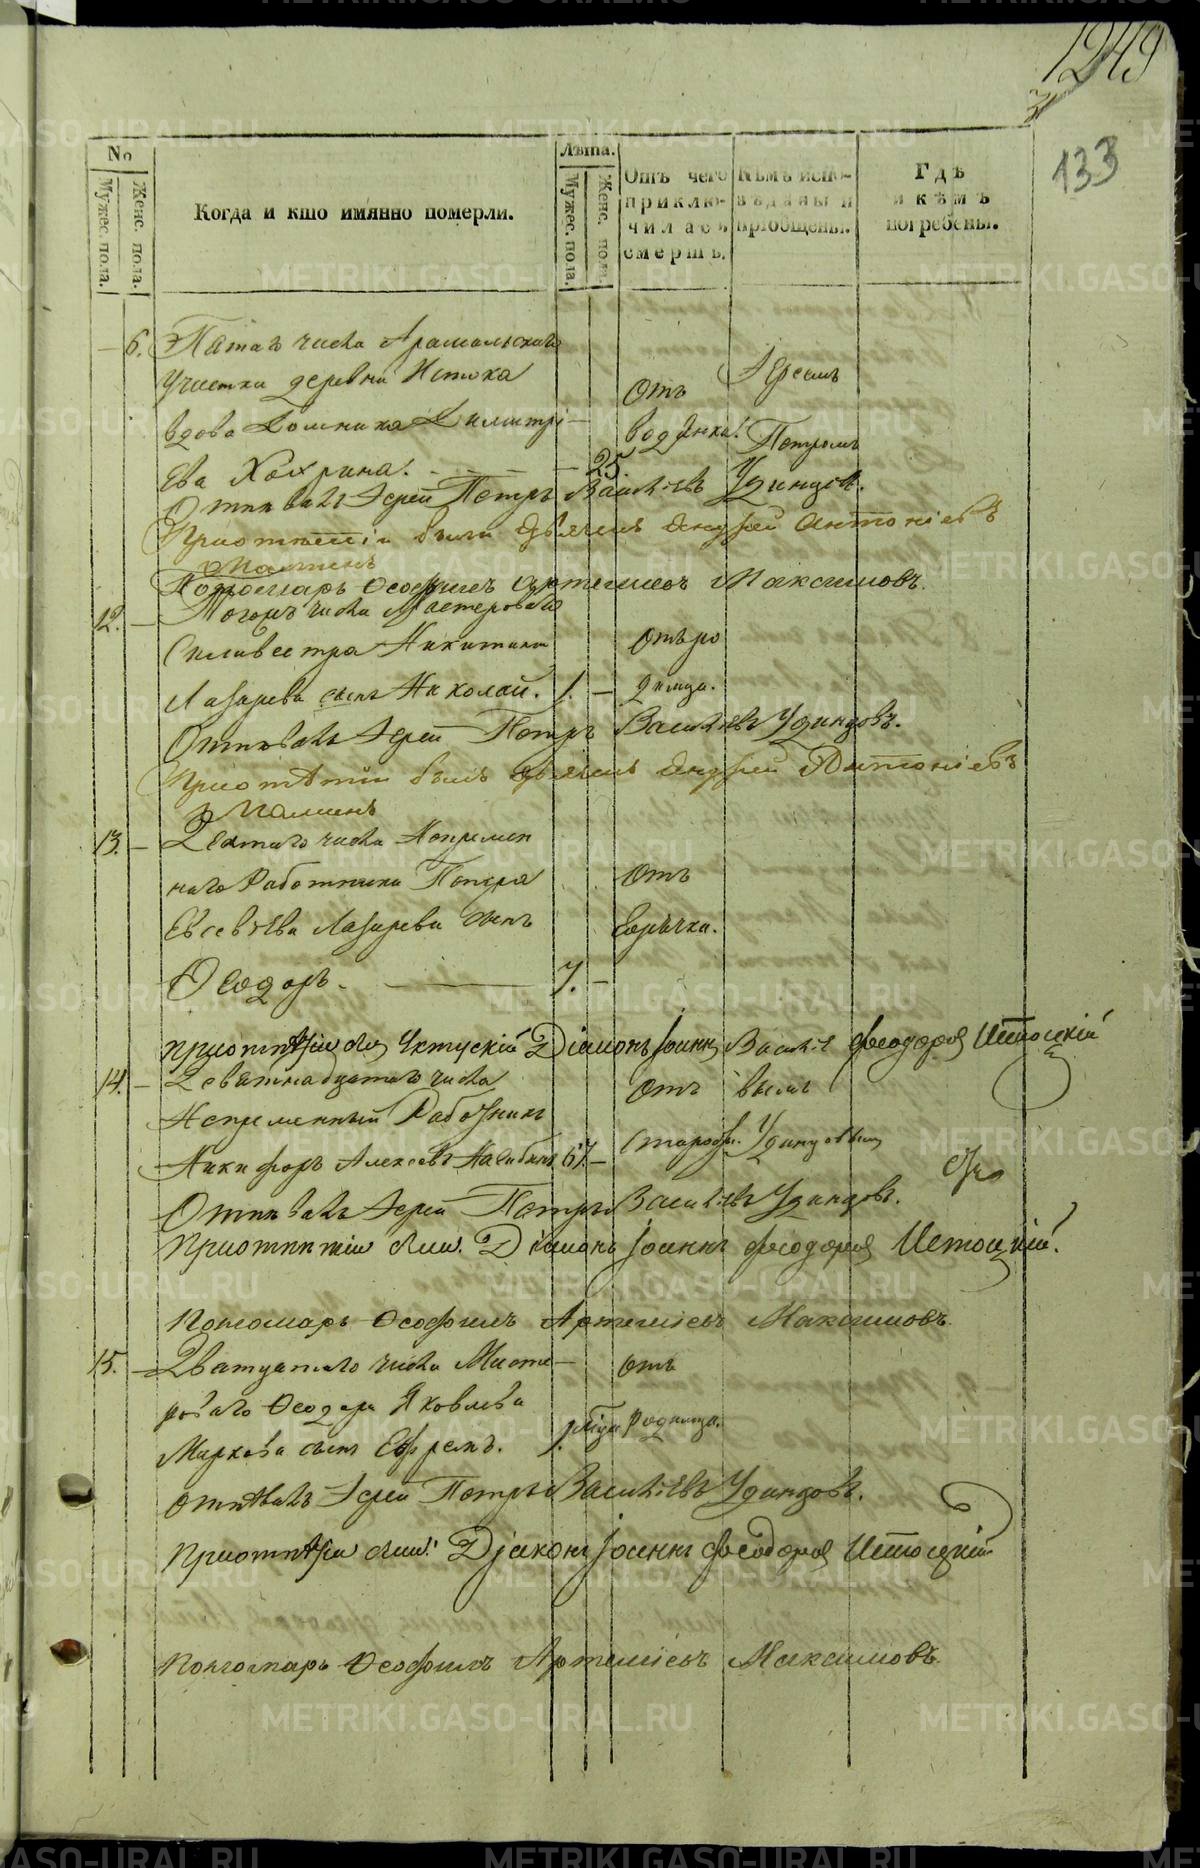 1249
31
133
№
Лѣта.
Мужес. пола.
Женс. пола.
Когда и кто имянно померли.
Мужес. пола.
Женс. пола.
Отъ чего приклю-чилась смерть.
Кѣмъ испо-вѣданы и пріобщены.
Гдѣ и кѣмъ погребены.
6. Пятаго числа Арамильскаго
участка деревни Истока
вдова Домника Димитрі-
ева Хохрина. 25
Отъ водянки.
Іереемъ Петромъ
Отпѣвалъ Іерей Петръ Васильевъ Удинцовъ.
При отпѣтіи были дьячекъ Андрей Антоніевъ
Пономарь Ѳеофилъ Артеміевъ Максимовъ.
12. Тогожъ числа Мастероваго
Силивестра Никитина
Лазарева сынъ Николай. 1.
Отъ ро
димца.
Отпѣвалъ Іерей Петръ Васильевъ Удинцовъ.
При отпѣтіи былъ дьячекъ Андрей Антоніевъ
13. Десятаго числа Непремен
наго Работника Петра
Евсевьева Лазарева сынъ
Ѳеодоръ. 7.
Отъ
горячки.
При отпѣтіи былъ Уктускій Діаконъ Іоаннъ Ѳеодоровъ Истоцкій
14. Девятнадцатаго числа
Непременный Работникъ
Никифоръ Алексѣевъ 67
Отъ
старости.
Василь
евымъ
Удинцовымъ
Отпѣвалъ Іерей Петръ Васильевъ Удинцовъ.
При отпѣтіи былъ. Діаконъ Іоаннъ Ѳеодоровъ Истоцкій.
Пономарь Ѳеофилъ Артеміевъ Максимовъ.
15. Дватцатаго числа Масте-
роваго Ѳеодора Яковлева
Маркова сынъ Ефремъ. 1.
отъ
родимца.
отпѣвалъ Іерей Петръ Васильевъ Удинцовъ.
При отпѣтіи былъ Діаконъ Іоаннъ Ѳеодоровъ Истоцкій
Пономарь Ѳеофилъ Артеміевъ Максимовъ.
METRIKI.GASO-URAL.RU